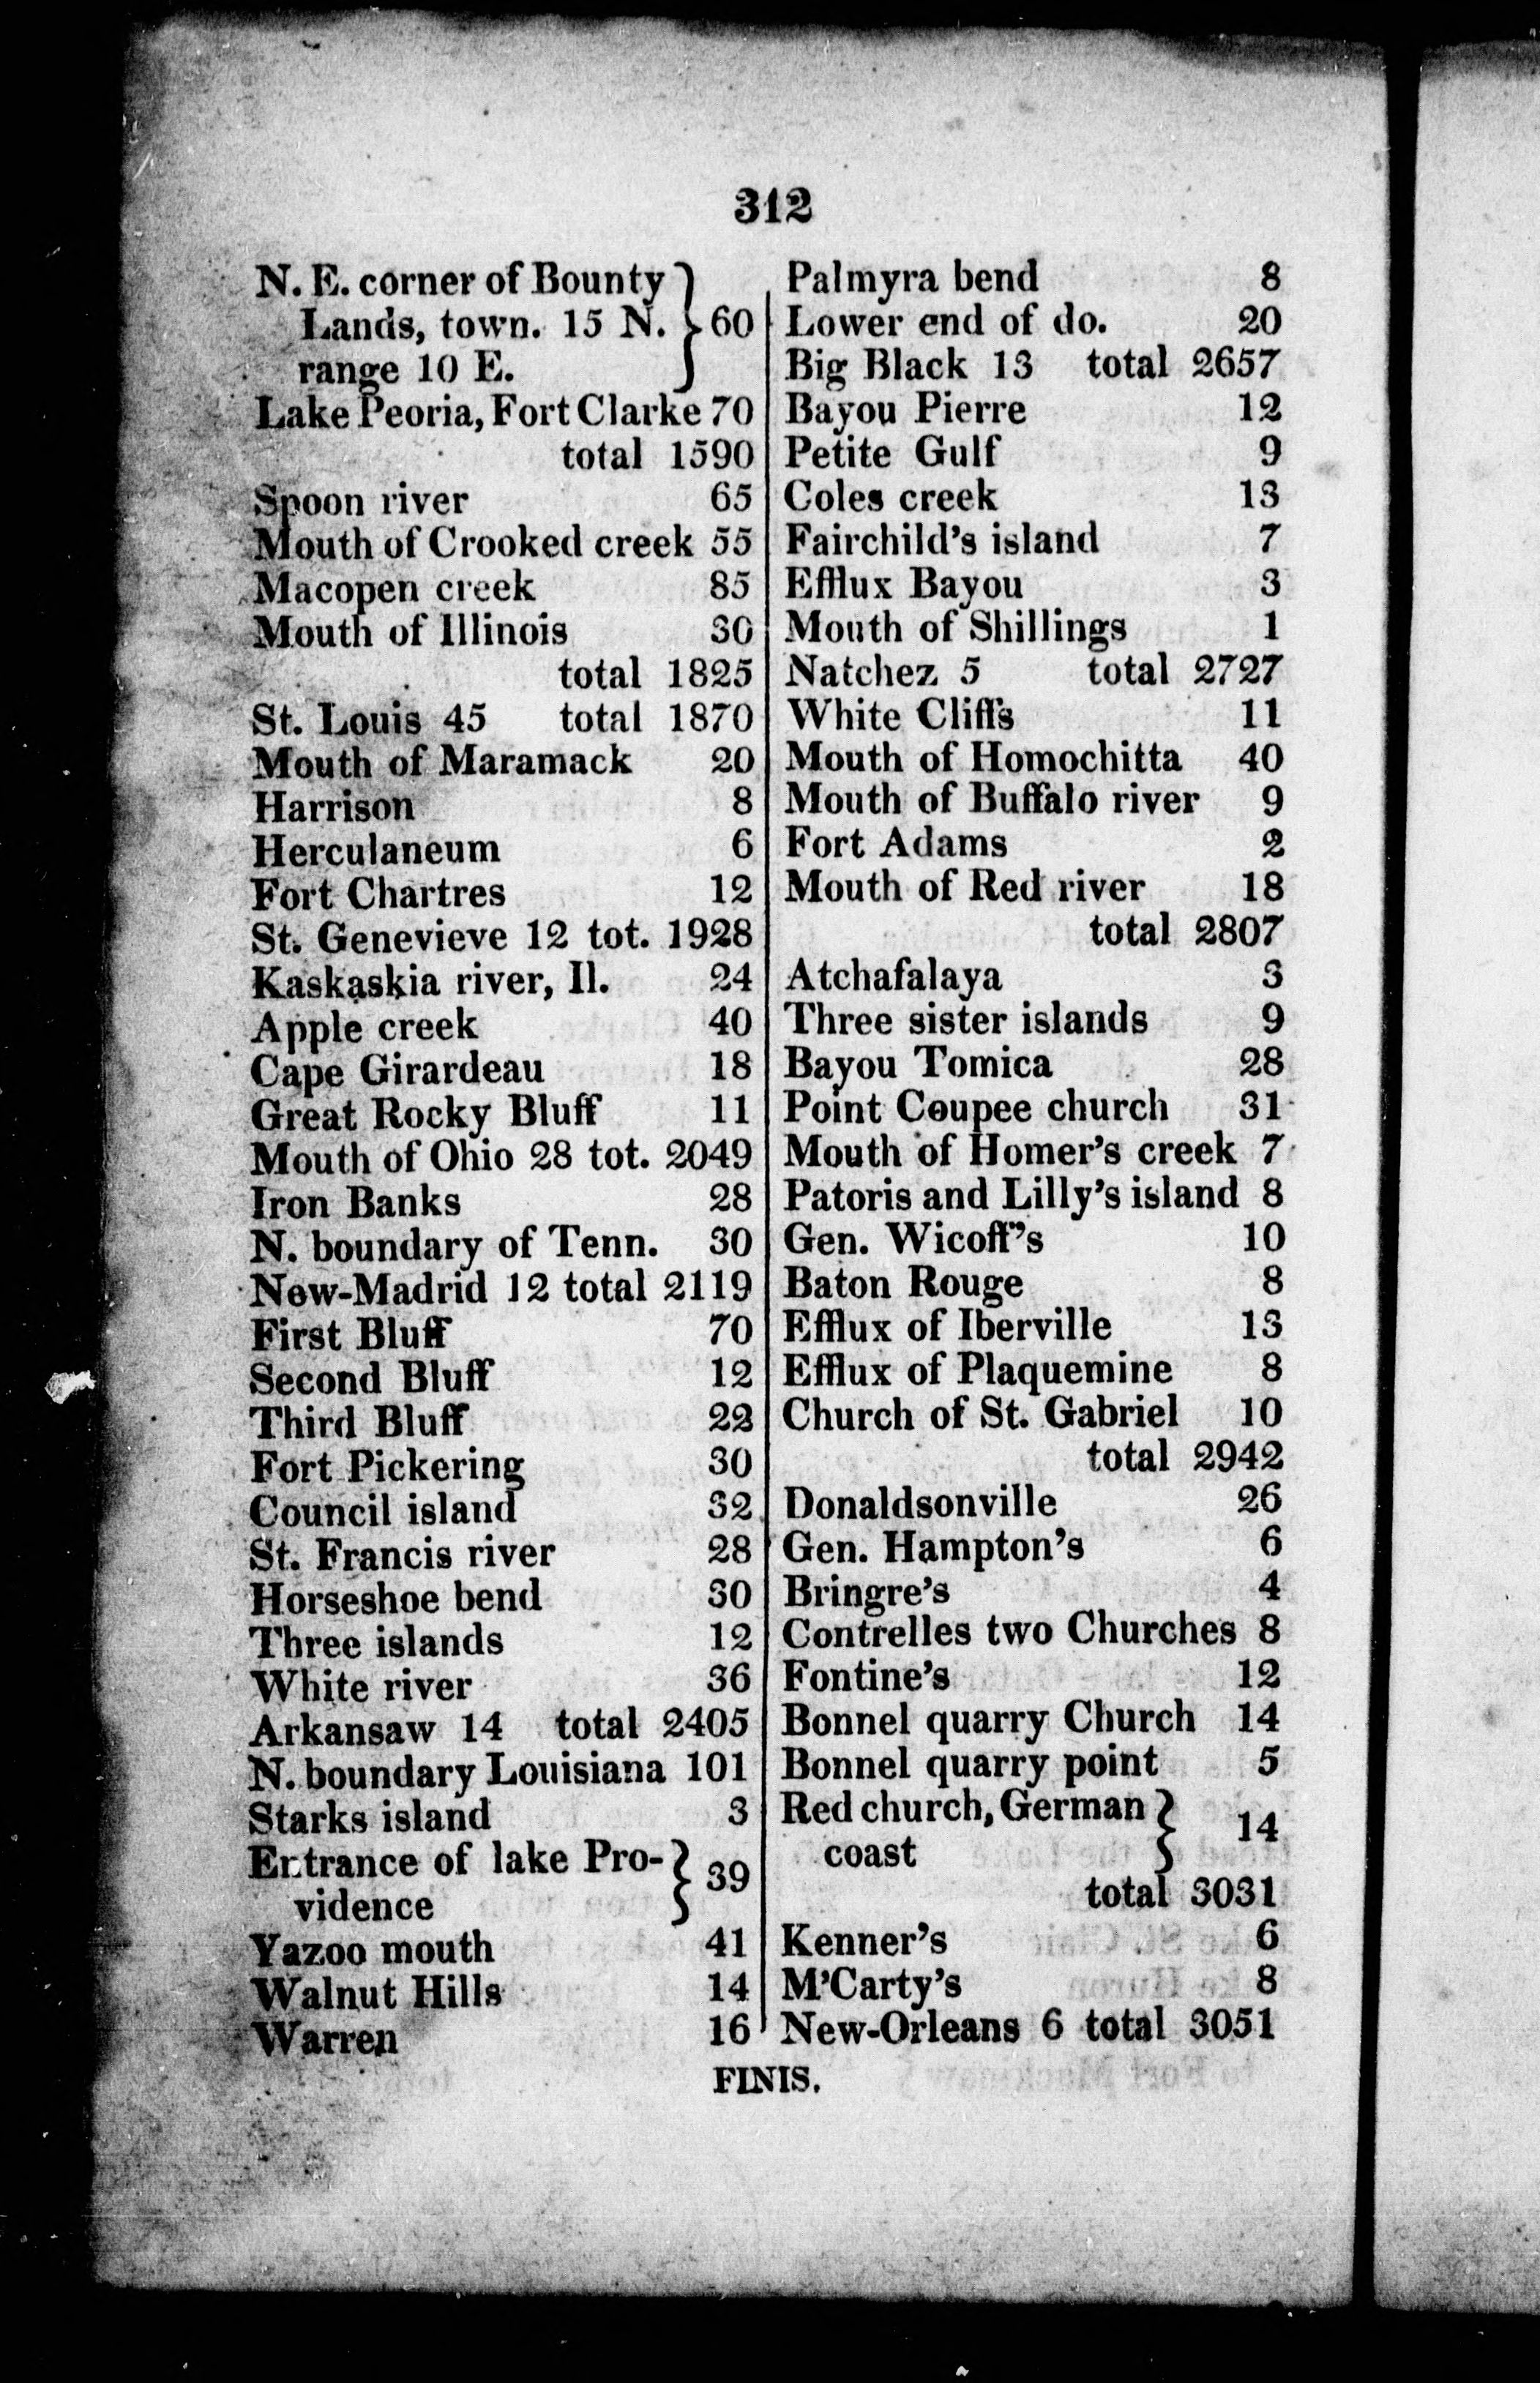 312
N. E. corner of Bounty
Lands, town. 15 N. } 60
range 10 E.
Lake Peoria, Fort Clarke 70
total 1590
Spoon river 65
Mouth of Crooked creek 55
Macopen creek 85
Mouth of Illinois 30
total 1825
St. Louis 45 total 1870
Mouth of Maramack 20
Harrison 8
Herculaneum 6
Fort Chartres 12
St. Genevieve 12 tot. 1928
Kaskaskia river, Il. 24
Apple creek 40
Cape Girardeau 18
Great Rocky Bluff 11
Mouth of Ohio 28 tot. 2049
Iron Banks 28
N. boundary of Tenn. 30
New-Madrid 12 total 2119
First Bluff 70
Second Bluff 12
Third Bluff 22
Fort Pickering 30
Council island 32
St. Francis river 28
Horseshoe bend 30
Three islands 12
White river 36
Arkansaw 14 total 2405
N. boundary Louisiana 101
Starks island 3
Entrance of lake Pro- } 39
vidence
Yazoo mouth 41
Walnut Hills 14
Warren 16
Palmyra bend 8
Lower end of do. 20
Big Black 13 total 2657
Bayou Pierre 12
Petite Gulf 9
Coles creek 13
Fairchild's island 7
Efflux Bayou 3
Mouth of Shillings 1
Natchez 5 total 2727
White Cliffs 11
Mouth of Homochitta 40
Mouth of Buffalo river 9
Fort Adams 2
Mouth of Red river 18
total 2807
Atchafalaya 3
Three sister islands 9
Bayou Tomica 28
Point Coupee church 31
Mouth of Homer's creek 7
Patoris and Lilly's island 8
Gen. Wicoff's 10
Baton Rouge 8
Efflux of Iberville 13
Efflux of Plaquemine 8
Church of St. Gabriel 10
total 2942
Donaldsonville 26
Gen. Hampton's 6
Bringre's 4
Contrelles two Churches 8
Fontine's 12
Bonnel quarry Church 14
Bonnel quarry point 5
Red church, German } 14
coast
total 3031
Kenner's 6
M'Carty's 8
New-Orleans 6 total 3051
FINIS.